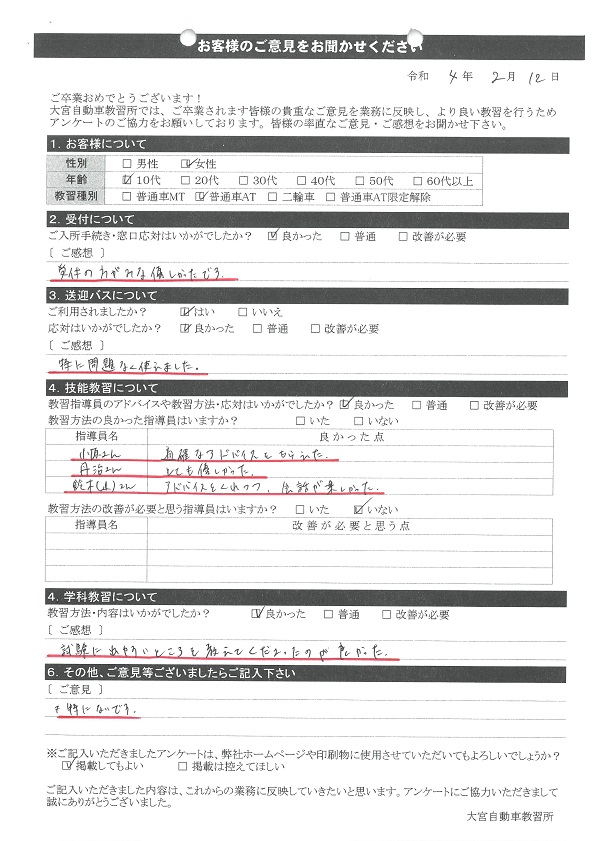 お客様のご意見をお聞かせください
令和 4 年 2 月 12 日
ご卒業おめでとうございます！
大宮自動車教習所では、ご卒業されます皆様の貴重なご意見を業務に反映し、より良い教習を行うため
アンケートのご協力をお願いしております。皆様の率直なご意見・ご感想をお聞かせ下さい。
1. お客様について
性別 □ 男性 ☑ 女性
年齢 ☑ 10代 □ 20代 □ 30代 □ 40代 □ 50代 □ 60代以上
教習種別 □ 普通車MT ☑ 普通車AT □ 二輪車 □ 普通車AT限定解除
2. 受付について
ご入所手続き・窓口応対はいかがでしたか？ ☑ 良かった □ 普通 □ 改善が必要
［ ご感想 ］
受付の方がみな優しかったです。
3. 送迎バスについて
ご利用されましたか？ ☑ はい □ いいえ
応対はいかがでしたか？ ☑ 良かった □ 普通 □ 改善が必要
［ ご感想 ］
特に問題なく使えました。
4. 技能教習について
教習指導員のアドバイスや教習方法・応対はいかがでしたか？ ☑ 良かった □ 普通 □ 改善が必要
教習方法の良かった指導員はいますか？ □ いた □ いない
指導員名 良かった点
さん 的確なアドバイスをもらえた。
丹治さん とても優しかった。
鈴木 さん アドバイスをくれつつ、会話が楽しかった。
教習方法の改善が必要と思う指導員はいますか？ □ いた ☑ いない
指導員名 改善が必要と思う点
4. 学科教習について
教習方法・内容はいかがでしたか？ ☑ 良かった □ 普通 □ 改善が必要
［ ご感想 ］
試験に出やすいところを教えてくださったのが良かった。
6. その他、ご意見等ございましたらご記入下さい
［ ご意見 ］
特にないです。
※ご記入いただきましたアンケートは、弊社ホームページや印刷物に使用させていただいてもよろしいでしょうか？
☑ 掲載してもよい □ 掲載は控えてほしい
ご記入いただきました内容は、これからの業務に反映していきたいと思います。アンケートにご協力いただきまして
誠にありがとうございました。
大宮自動車教習所